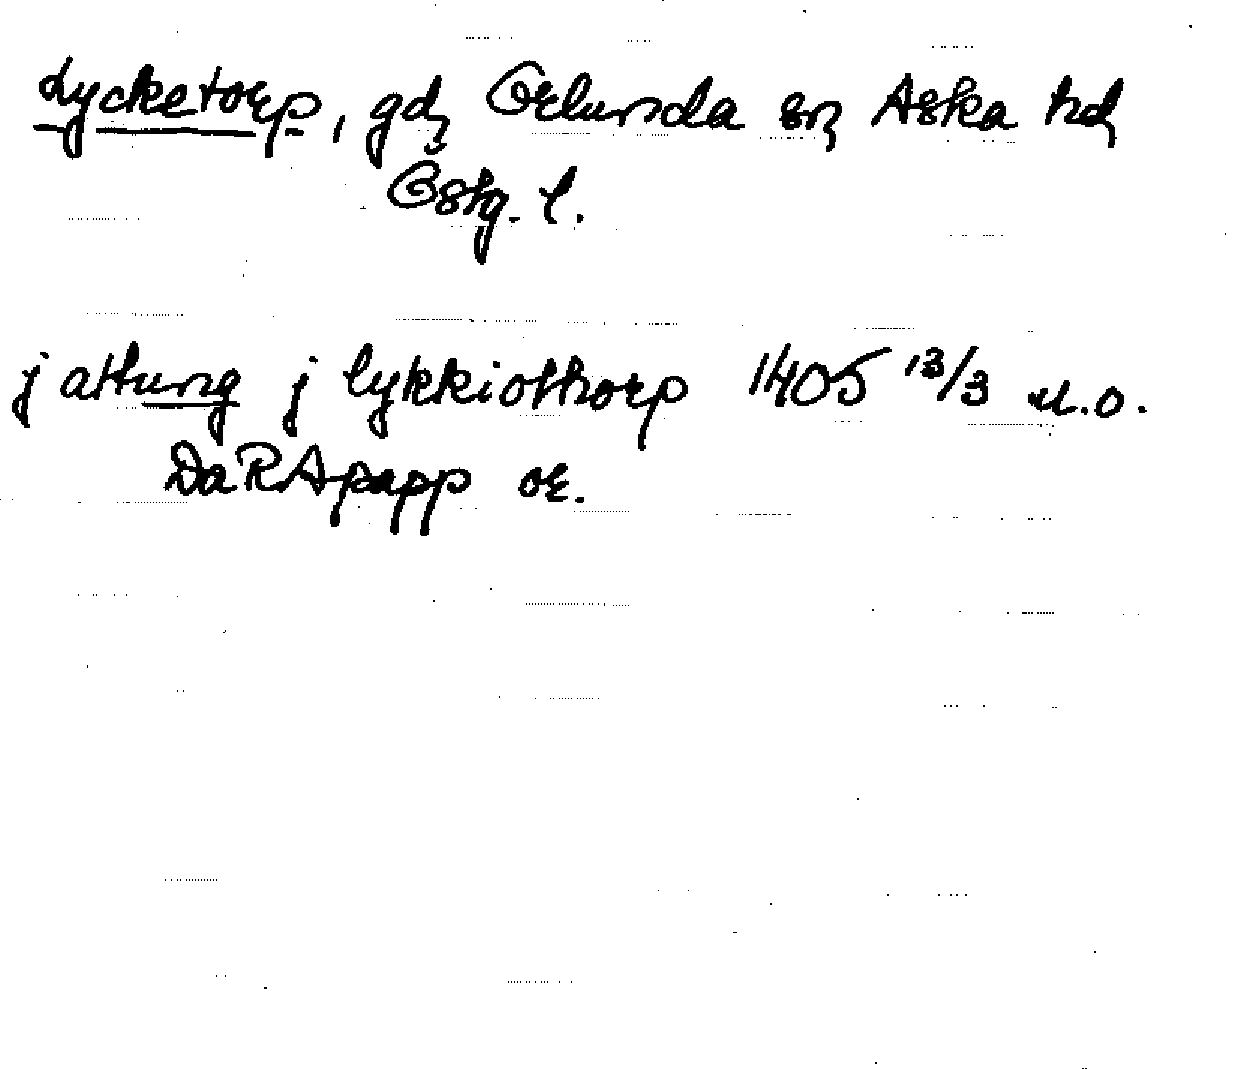 Lycketorp, gd, Örlunda sn, Aska hd,
Östg. l.
j attung j lykkiothorp 1405 13/3 u.o.
DaRApapp or.